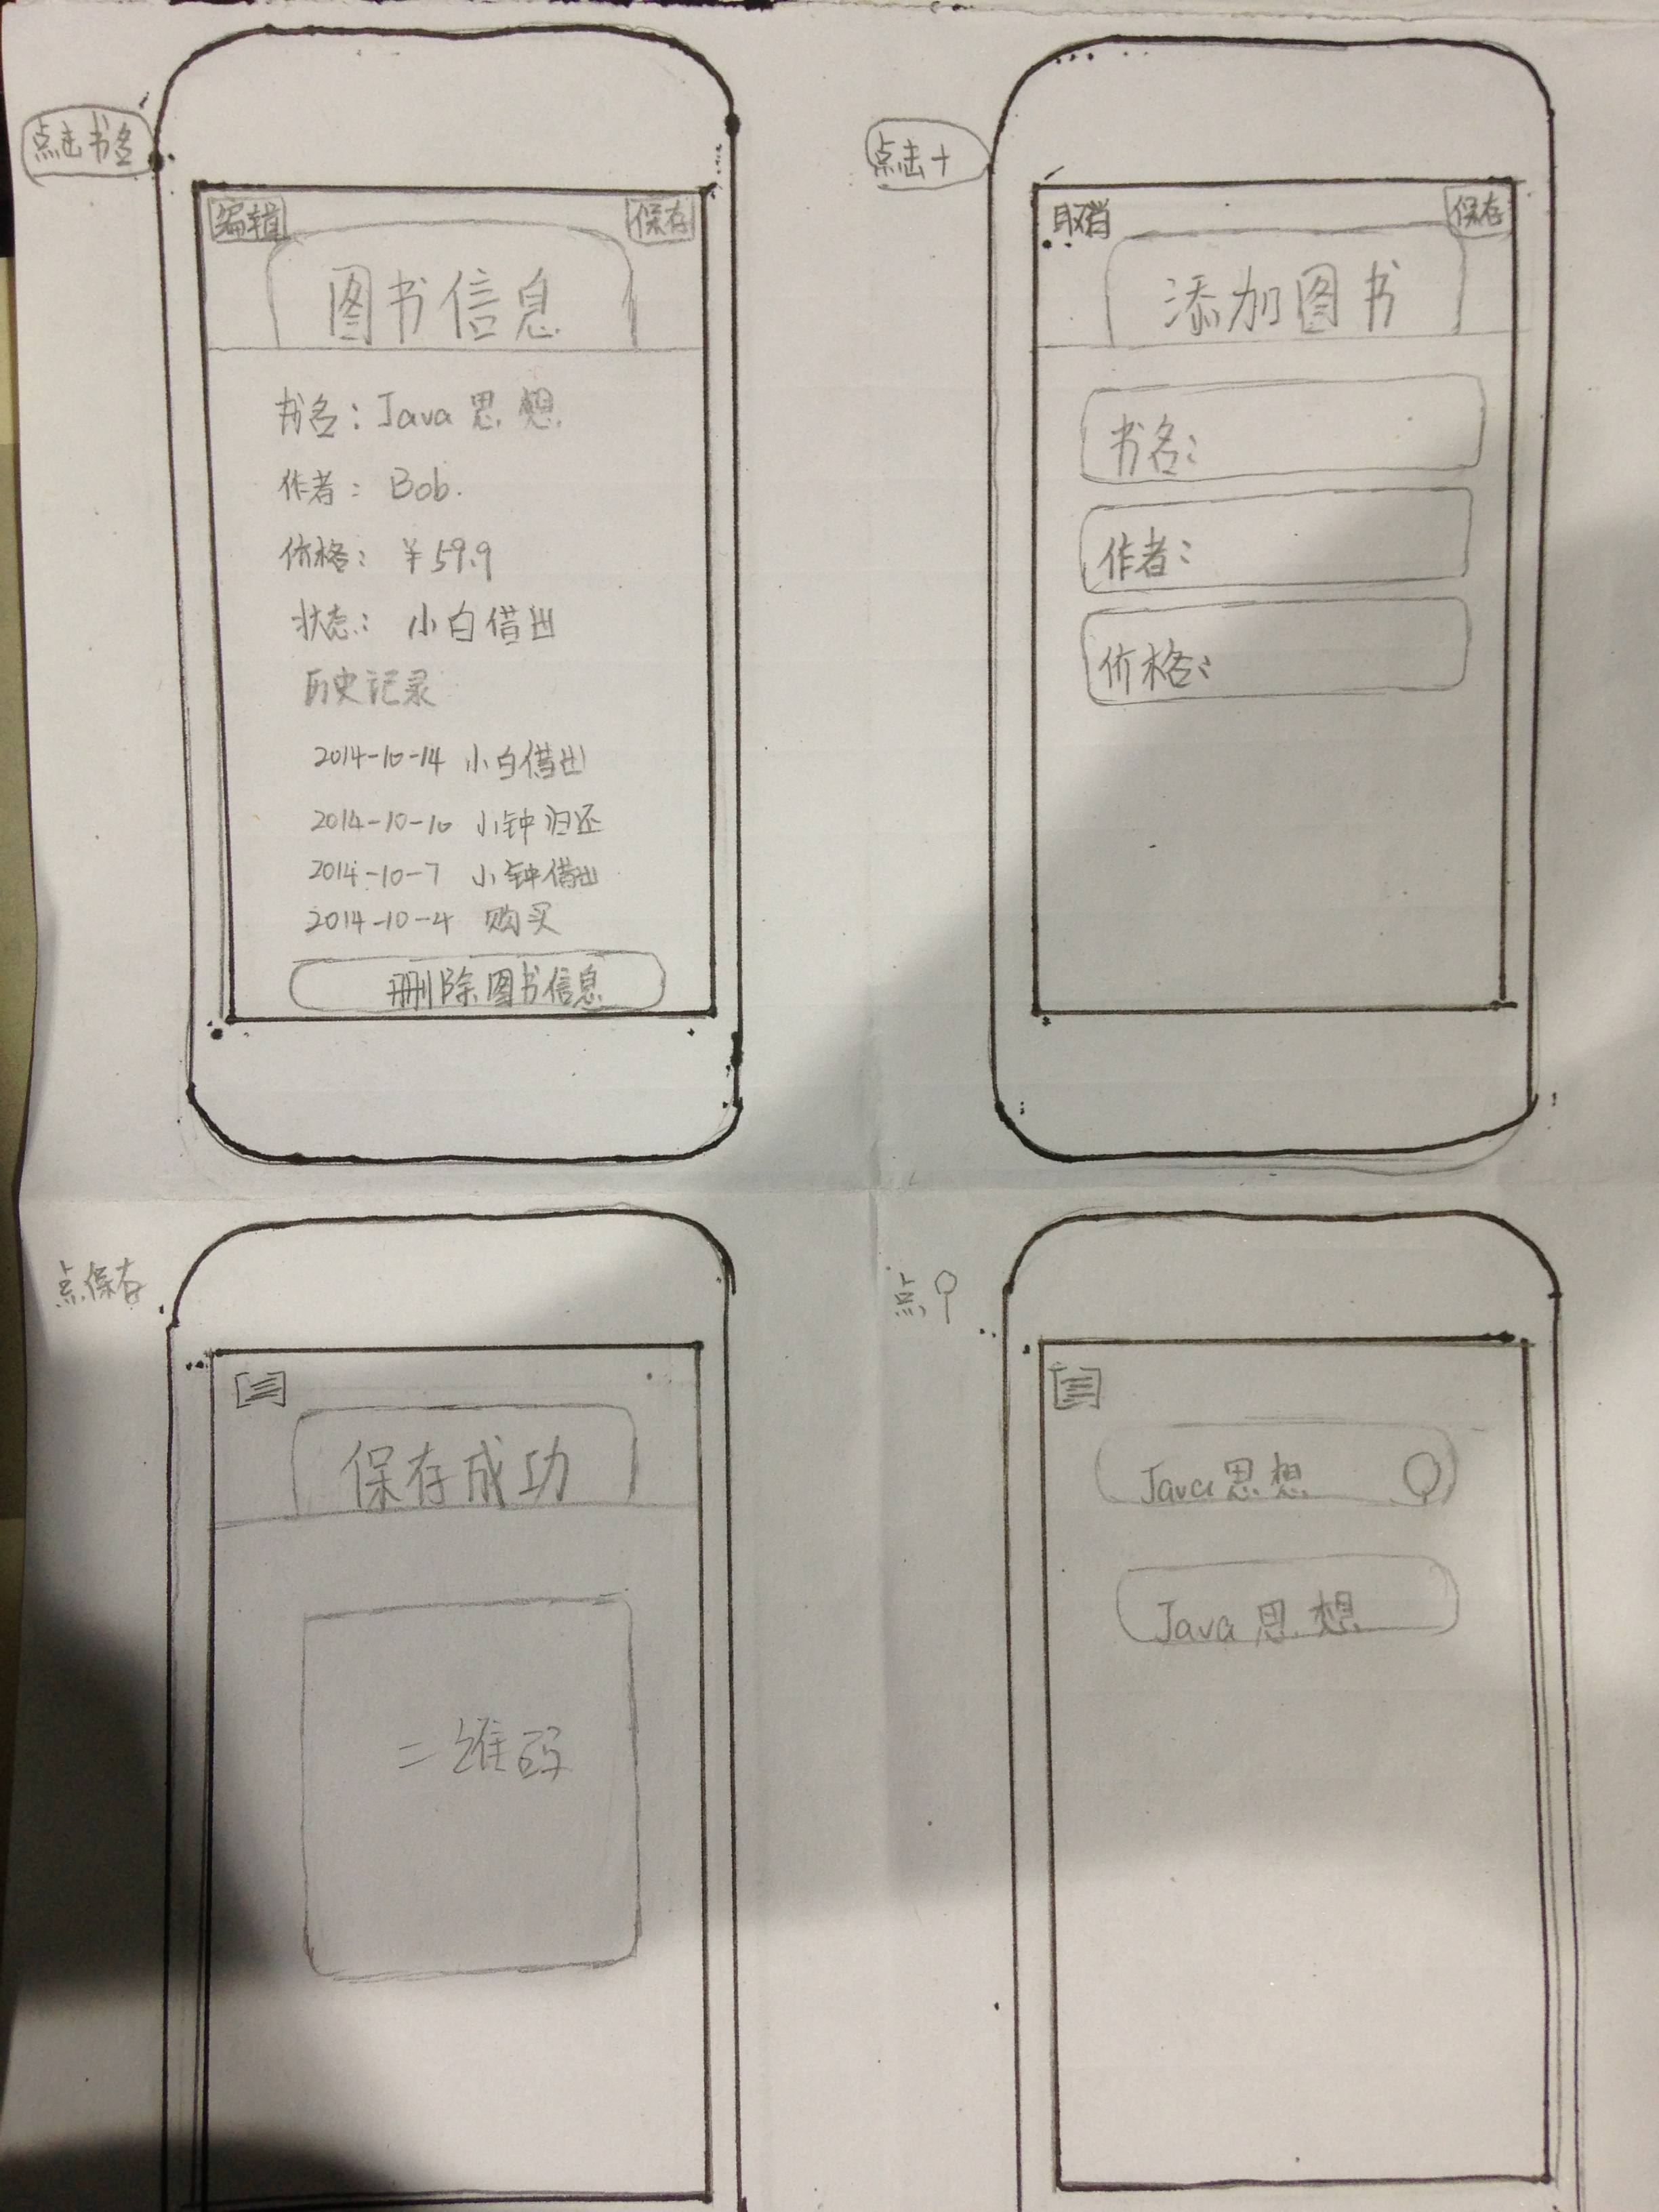 点击书名
编辑 保存
图书信息
书名：Java 思想
作者：Bob.
价格：￥59.9
状态：小白借出
历史记录
2014-10-14 小白借出
2014-10-10 小钟归还
2014-10-7 小钟借出
2014-10-4 购买
删除图书信息
点击+
取消 保存
添加图书
书名：
作者：
价格：
点保存
保存成功
二维码
点
Java思想
Java思想